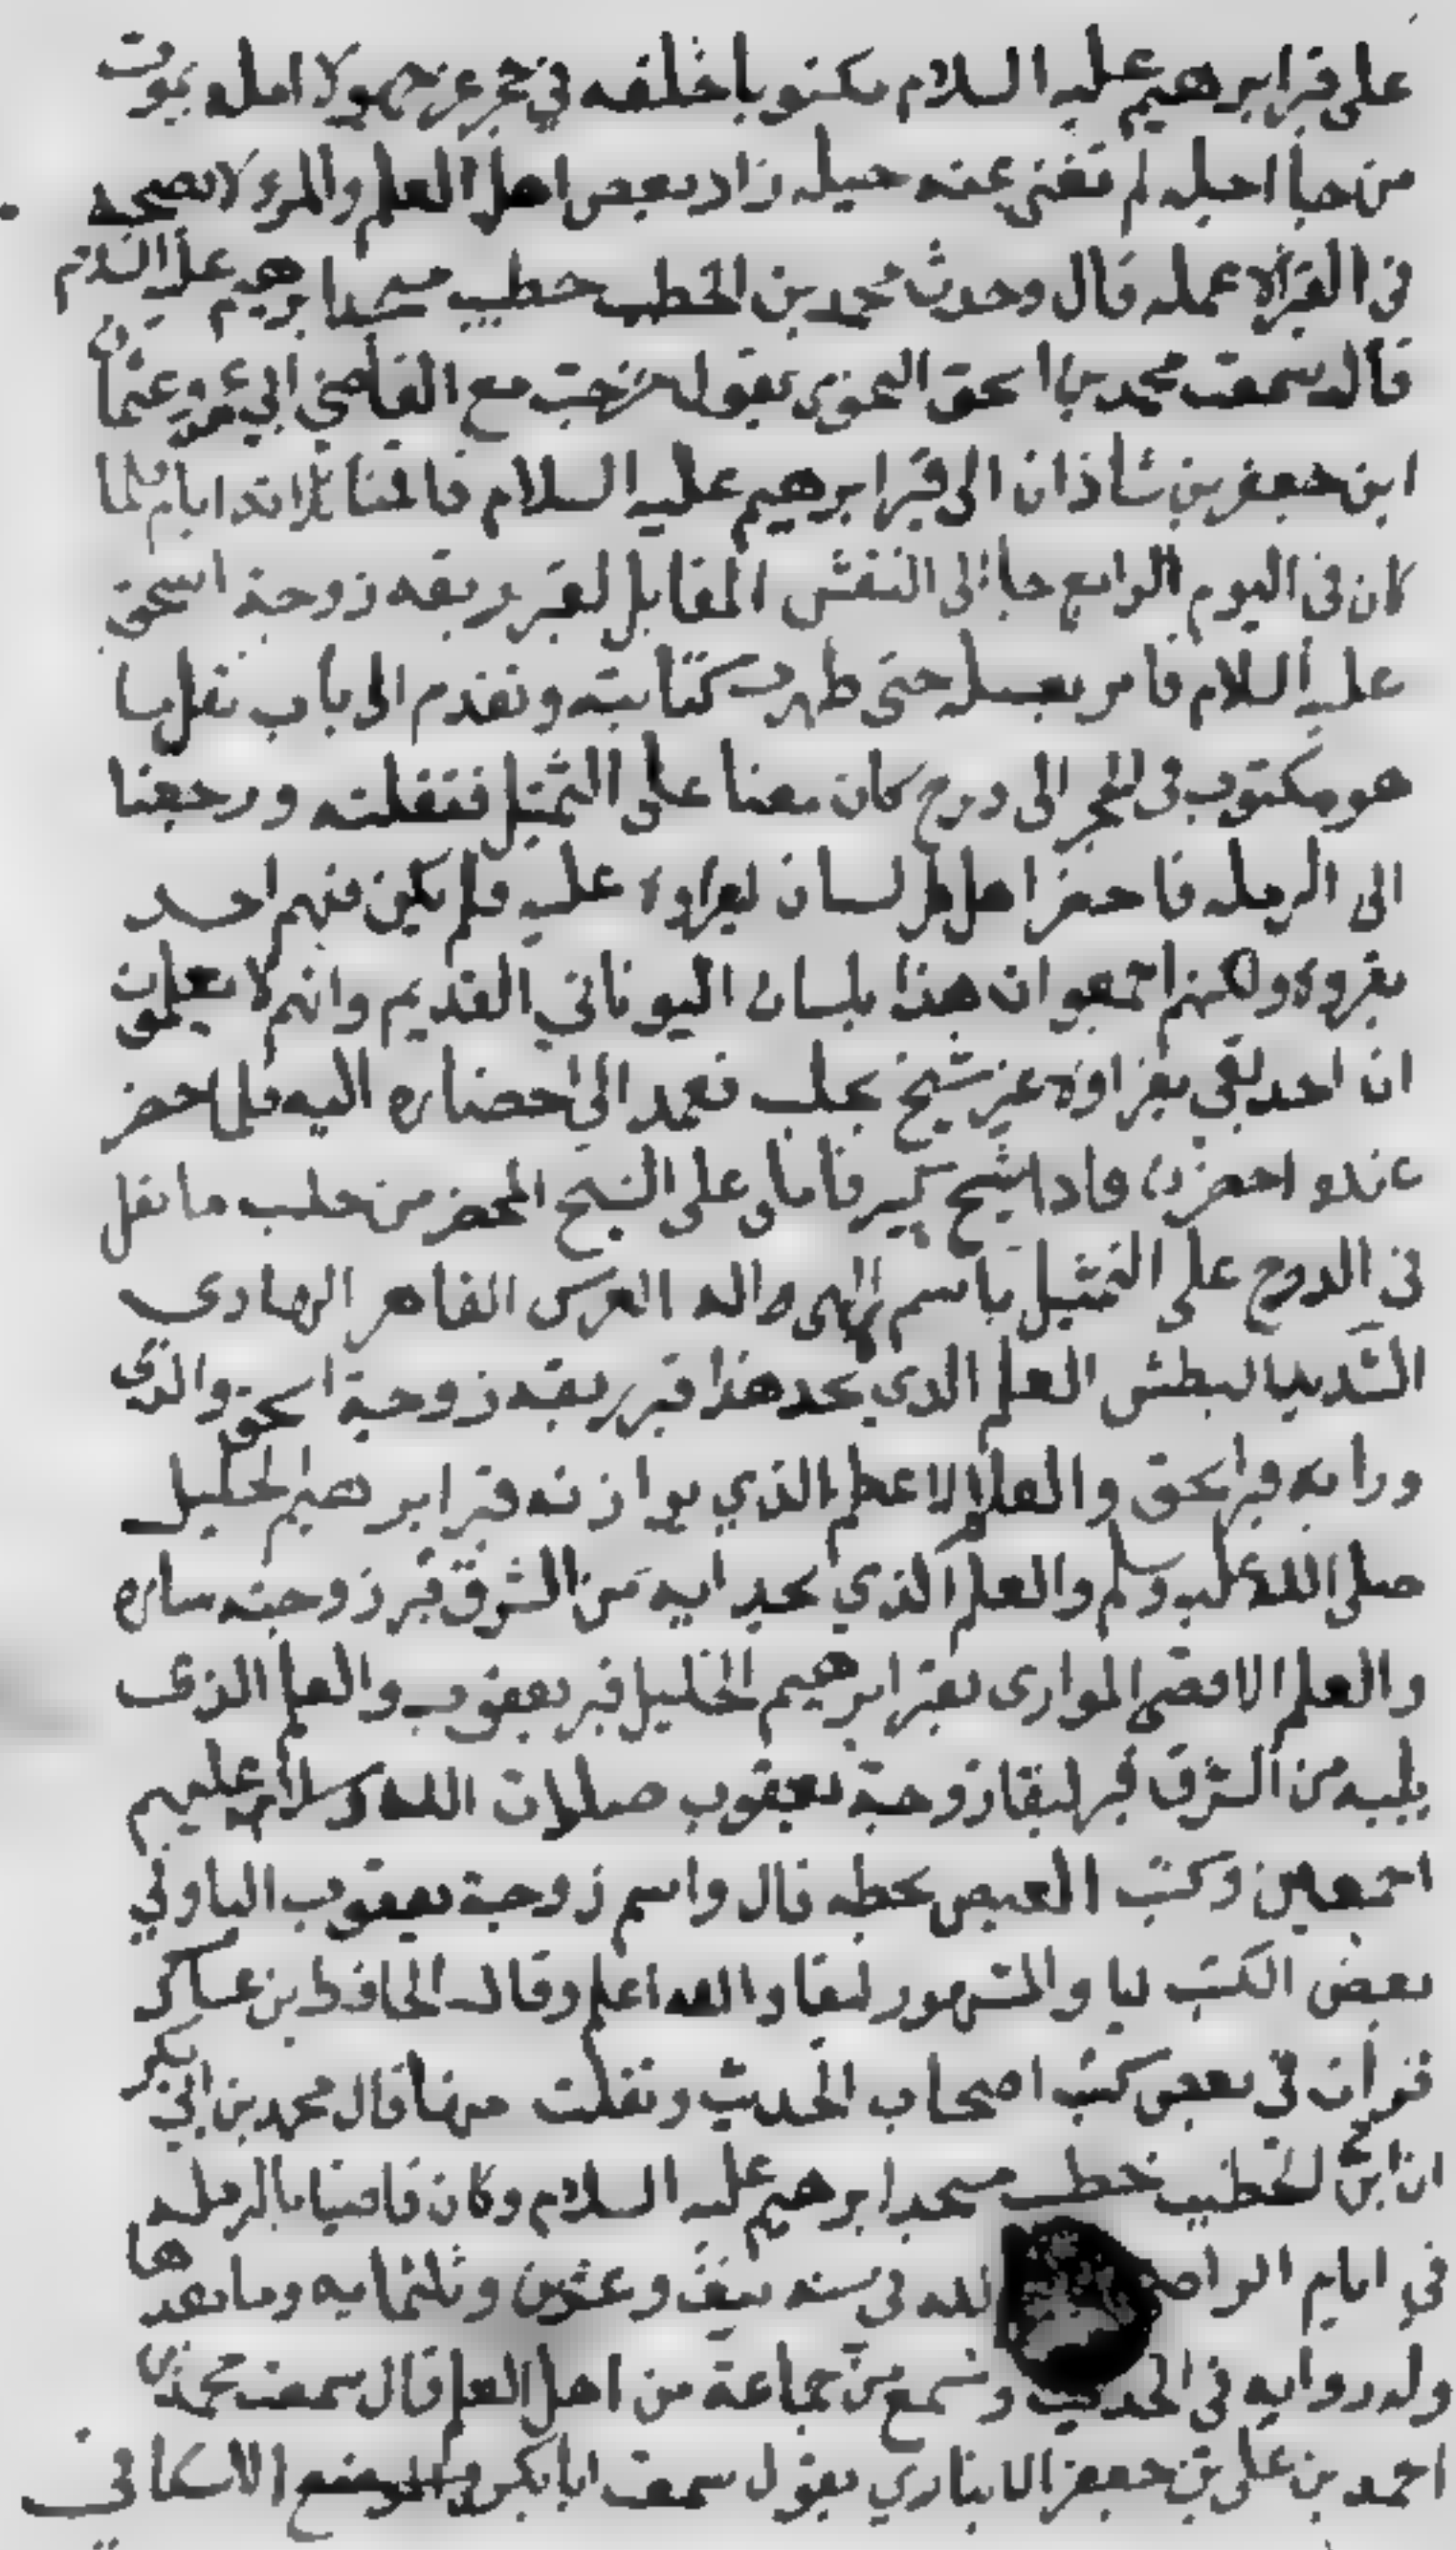 على قبر ابرهيم عليه السلام مكتوبا خلفه في حجر غر جهولا امله يموت
من جا اجله لم تغني عنه حيله زاد بعض اهل العلم والمرء لا يصحبه
في القبر الا عمله قال وحدث محمد بن الخطب خطيب مسجد ابرهيم عليه السلام
قال سمعت محمد بن اسحق النحوى يقول خرجت مع القاضي ابي عمرو عثمان
ابن جعفر بن شاذان الى قبر ابرهيم عليه السلام فاقمنا ثلاثه ايام فلما
كان في اليوم الرابع جا الى النقش المقابل لقبر ربقه زوجة اسحق
عليه السلام فامر بغسله حتى ظهرت كتابته وتقدم الى باب نقل ما
هو مكتوب في الحجر الى درج كان معنا على التمثيل فنقلته ورجعنا
الى الرمله فاحضر اهل كل لسان ليقراوه عليه فلم يكن فيهم احد
يقروه ولكنهم اجمعو ان هذا بلسان اليوناني القديم وانهم لا يعلمون
ان احد بقي يقراوه غير شيخ بحلب فعمد الى احضاره اليه فلما حضر
عنده احضرني فاذا شيخ كبير فاملى على الشيخ المحضر من حلب ما نقل
في الدرج على التمثيل باسم الهى واله العرش القاهر الهادي
الشديد البطش العلم الذي بحد هذا قبر ربقه زوجة اسحق والذي
وراه قبر اسحق والعلم الاعظم الذي يوازنه قبر ابرهيم الخليل
صلى الله عليه وسلم والعلم الذي بحدايه من الشرق قبر زوجته ساره
والعلم الاقصى الموارى لقبر ابرهيم الخليل قبر يعقوب والعلم الذى
يليه من الشرق قبر ليقا زوجة يعقوب صلوات الله وسلامه عليهم
اجمعين وكتب العيص بخطه قال واسم زوجة يعقوب الياوفي
بعض الكتب ليا والمشهور ليقا والله اعلم وقال الحافظ بن عساكر
قرات في بعض كتب اصحاب الحديث ونقلت منها قال محمد بن ابي بكر
ان ابن الخطيب خطيب مسجد ابرهيم عليه السلام وكان قاضيا بالرمله
في ايام الراضي لله في سنه نيف وعشرين وثلثمايه وما بعدها
وله روايه في الحديث وسمع من جماعة من اهل العلم قال سمعت محمد بن
احمد بن علي بن جعفر الانباري يقول سمعت ابا بكر الاسكافي